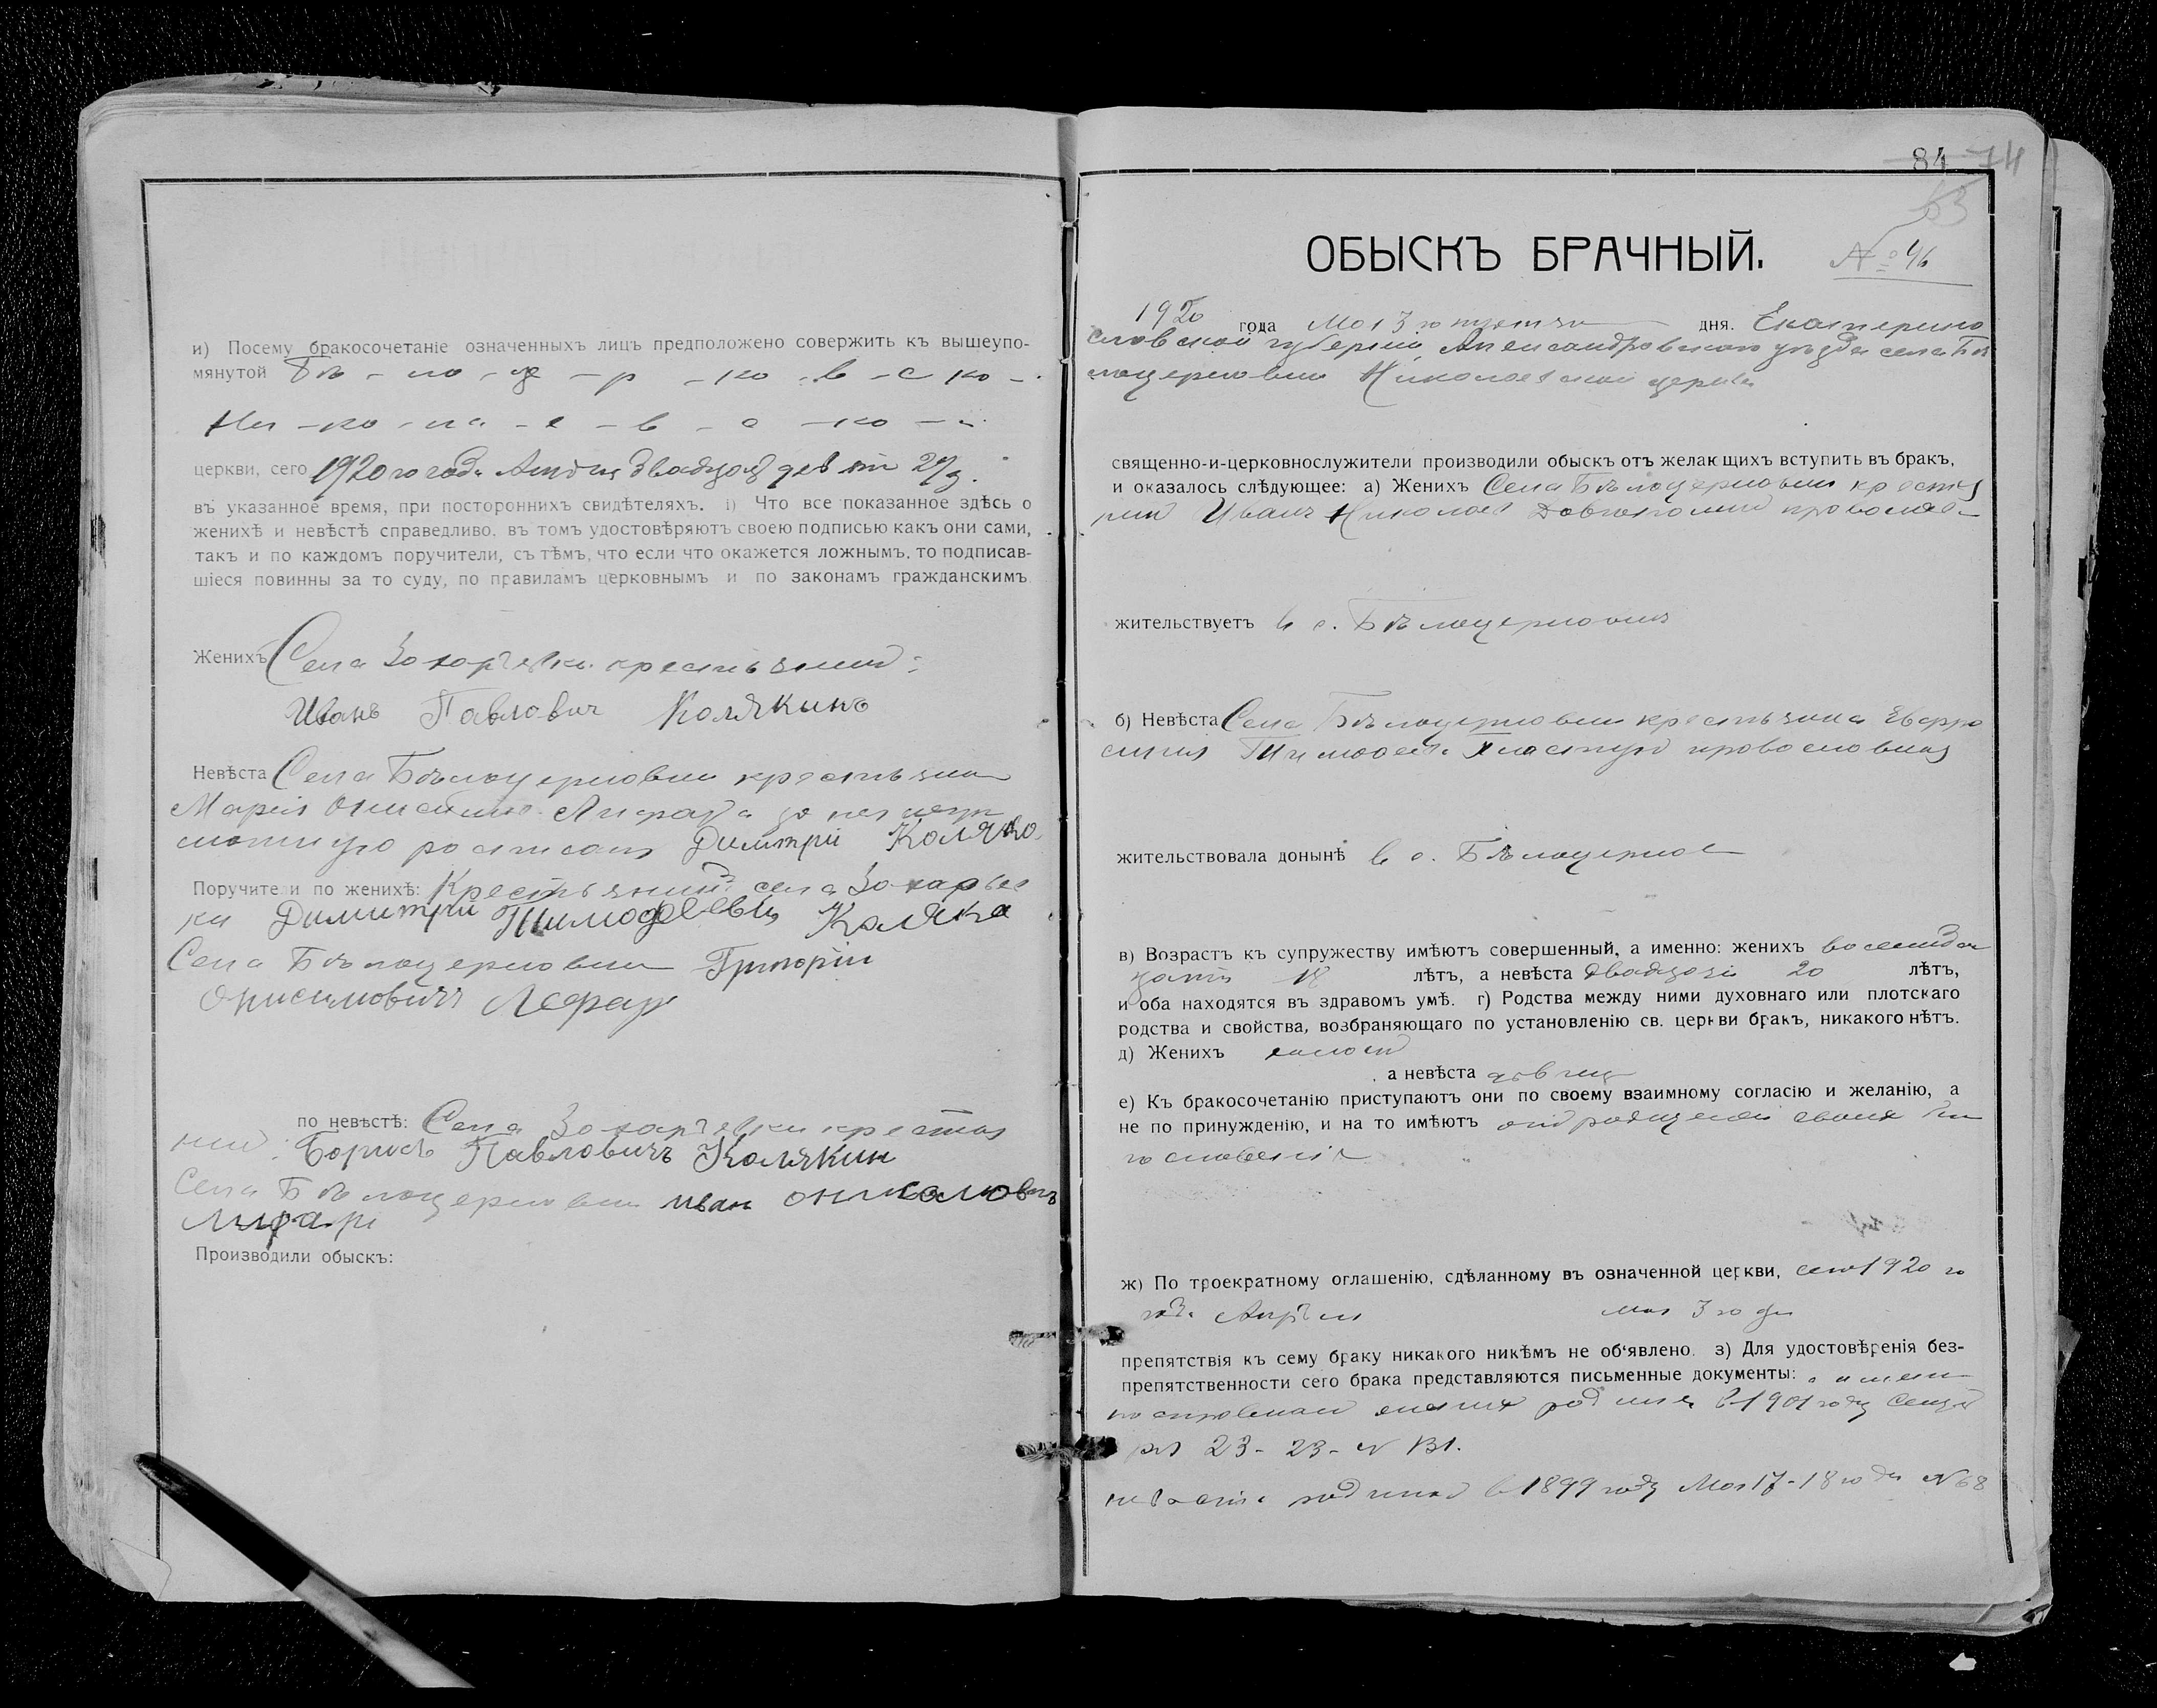 и) Посему бракосочетаніе означенныхъ лицъ предположено совержить къ вышеупо-
мянутой Бѣ - ло - це - р - ко - в - с ко -
Ни - ко - ла - е - в - с - ко - й
церкви, сего 1920 го года
въ указанное время, при постороннихъ свидѣтеляхъ. і) Что все показанное здѣсь о
женихѣ и невѣстѣ справедливо, въ томъ удостовѣряютъ своею подписью какъ они сами,
такъ и по каждомъ поручители, съ тѣмъ, что если что окажется ложнымъ, то подписав-
шіеся повинны за то суду, по правиламъ церковнымъ и по законамъ гражданскимъ.
Женихъ Села крестьянин
Иванъ Павлович Колякинъ
Невѣста Села Бѣлоцерковки
Марія
Димтрій Коляко
Поручители по женихѣ: Крестьянин села Захарьев
ки Димитрій Тимофеевич Коляка
Села Бѣлоцерковки Григорій
Онисимовичъ
по невѣстѣ: Села
Борисъ Павловичъ Колякин
Села Бѣлоцерковки иван
Производили обыскъ:
84 74
63
ОБЫСКЪ БРАЧНЫЙ.
№ 46
1920 года Мая 3 го дня. Екатерино
славской губерніи Александровского уѣзда села Бѣ
лоцерковки Николаевской церкви
священно-и-церковнослужители производили обыскъ отъ желающихъ вступить въ бракъ,
и оказалось слѣдующее: а) Женихъ Села Бѣлоцерковки крестья
нин Иванъ Николаев
жительствуетъ в с. Бѣлоцерковки
б) Невѣста Села Бѣлоцерковки крестьянка Евфро
синия Тимофеев. православная
жительствовала донынѣ в с. Бѣлоцерков
в) Возрастъ къ супружеству имѣютъ совершенный, а именно: женихъ восемнад
цать 18 лѣтъ, а невѣста двадцать 20 лѣтъ,
и оба находятся въ здравомъ умѣ. г) Родства между ними духовнаго или плотскаго
родства и свойства, возбраняющаго по установленію св. церкви бракъ, никакого нѣтъ.
д) Женихъ холост
а невѣста дѣвица
е) Къ бракосочетанію приступаютъ они по своему взаимному согласію и желанію, а
не по принужденію, и на то имѣютъ от родителей своих бла
гословенія
ж) По троекратному оглашенію, сдѣланному въ означенной церкви, сего 1920 го
года Апрѣля мая 3 го дня
препятствія къ сему браку никакого никѣмъ не об'явлено. з) Для удостовѣренія без-
препятственности сего брака представляются письменные документы:
жених родился в 1901 году
23 - 23 - №
невѣста в 1899 году Мая 17-18 го дня № 68